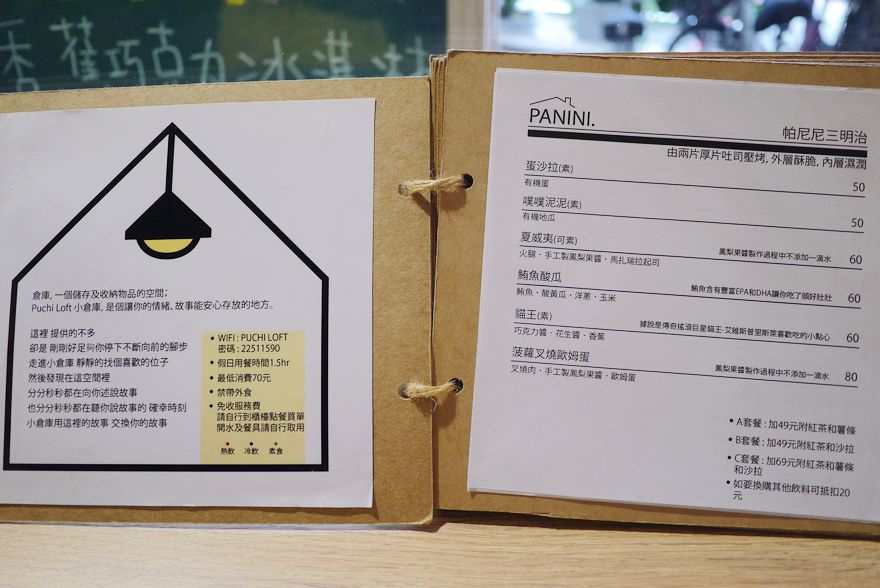 香蕉巧克力冰淇
倉庫, 一個儲存及收納物品的空間;
Puchi Loft 小倉庫, 是個讓你的情緒、故事能安心存放的地方。
這裡 提供的不多
卻是 剛剛好足夠你停下不斷向前的腳步
走進小倉庫 靜靜的找個喜歡的位子
然後發現在這空間裡
分分秒秒都在向你述說故事
也分分秒秒都在聽你說故事的 確幸時刻
小倉庫用這裡的故事 交換你的故事
• WIFI : PUCHI LOFT
密碼 : 22511590
• 假日用餐時間1.5hr
• 最低消費70元
• 禁帶外食
• 免收服務費
請自行到櫃檯點餐買單
開水及餐具請自行取用
熱飲 冷飲 素食
PANINI.
帕尼尼三明治
由兩片厚片吐司壓烤, 外層酥脆, 內層濕潤
蛋沙拉(素) 50
有機蛋
噗噗泥泥(素) 50
有機地瓜
夏威夷(可素) 鳳梨果醬製作過程中不添加一滴水 60
火腿．手工製鳳梨果醬．馬扎瑞拉起司
鮪魚酸瓜 鮪魚含有豐富EPA和DHA讓你吃了頭好壯壯 60
鮪魚．酸黃瓜．洋蔥．玉米
貓王(素) 據說是傳奇搖滾巨星貓王-艾維斯普里斯萊喜歡吃的小點心 60
巧克力醬．花生醬．香蕉
菠蘿叉燒歐姆蛋 鳳梨果醬製作過程中不添加一滴水 80
叉燒肉．手工製鳳梨果醬．歐姆蛋
• A套餐 : 加49元附紅茶和薯條
• B套餐 : 加49元附紅茶和沙拉
• C套餐 : 加69元附紅茶和薯條
和沙拉
• 如要換購其他飲料可抵扣20
元